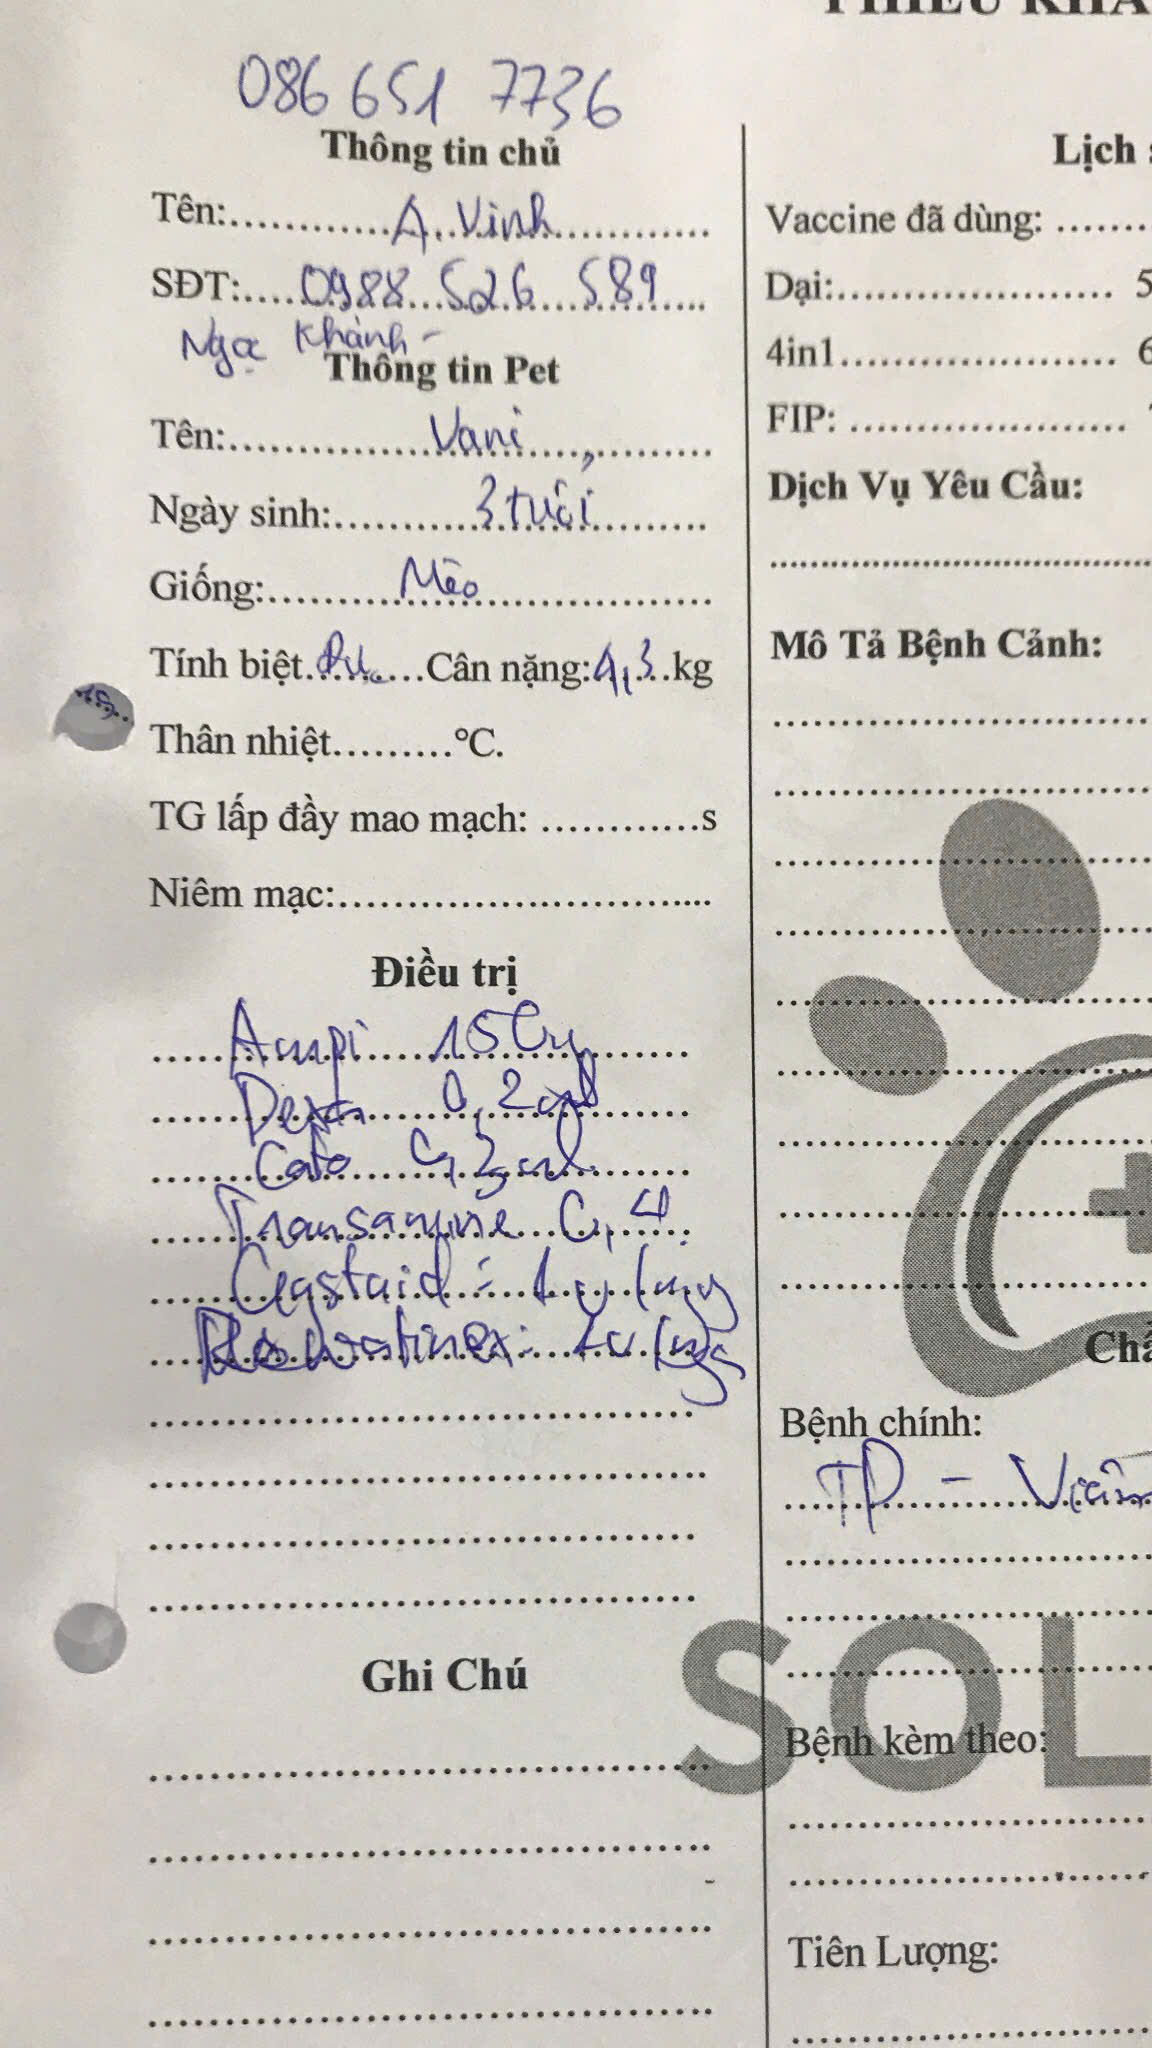 PHIẾU KHÁ
086 651 7736
Thông tin chủ
Tên: A. Vinh
SĐT: 0988 526 589
Ngọc Khánh -
Thông tin Pet
Tên: Vani
Ngày sinh: 3 tuổi
Giống: Mèo
Tính biệt Cân nặng: 4,3 kg
Thân nhiệt °C.
TG lấp đầy mao mạch: s
Niêm mạc:
Điều trị
Ampi
Dexa 0,2ml
Cato 0,3ml
Transamine 0,4
Gastaid:
Rowatinex:
Ghi Chú
Lịch
Vaccine đã dùng:
Dại: 5
4in1 6
FIP:
Dịch Vụ Yêu Cầu:
Mô Tả Bệnh Cảnh:
Chẩ
Bệnh chính:
TD - Viêm
SOL
Bệnh kèm theo:
Tiên Lượng: